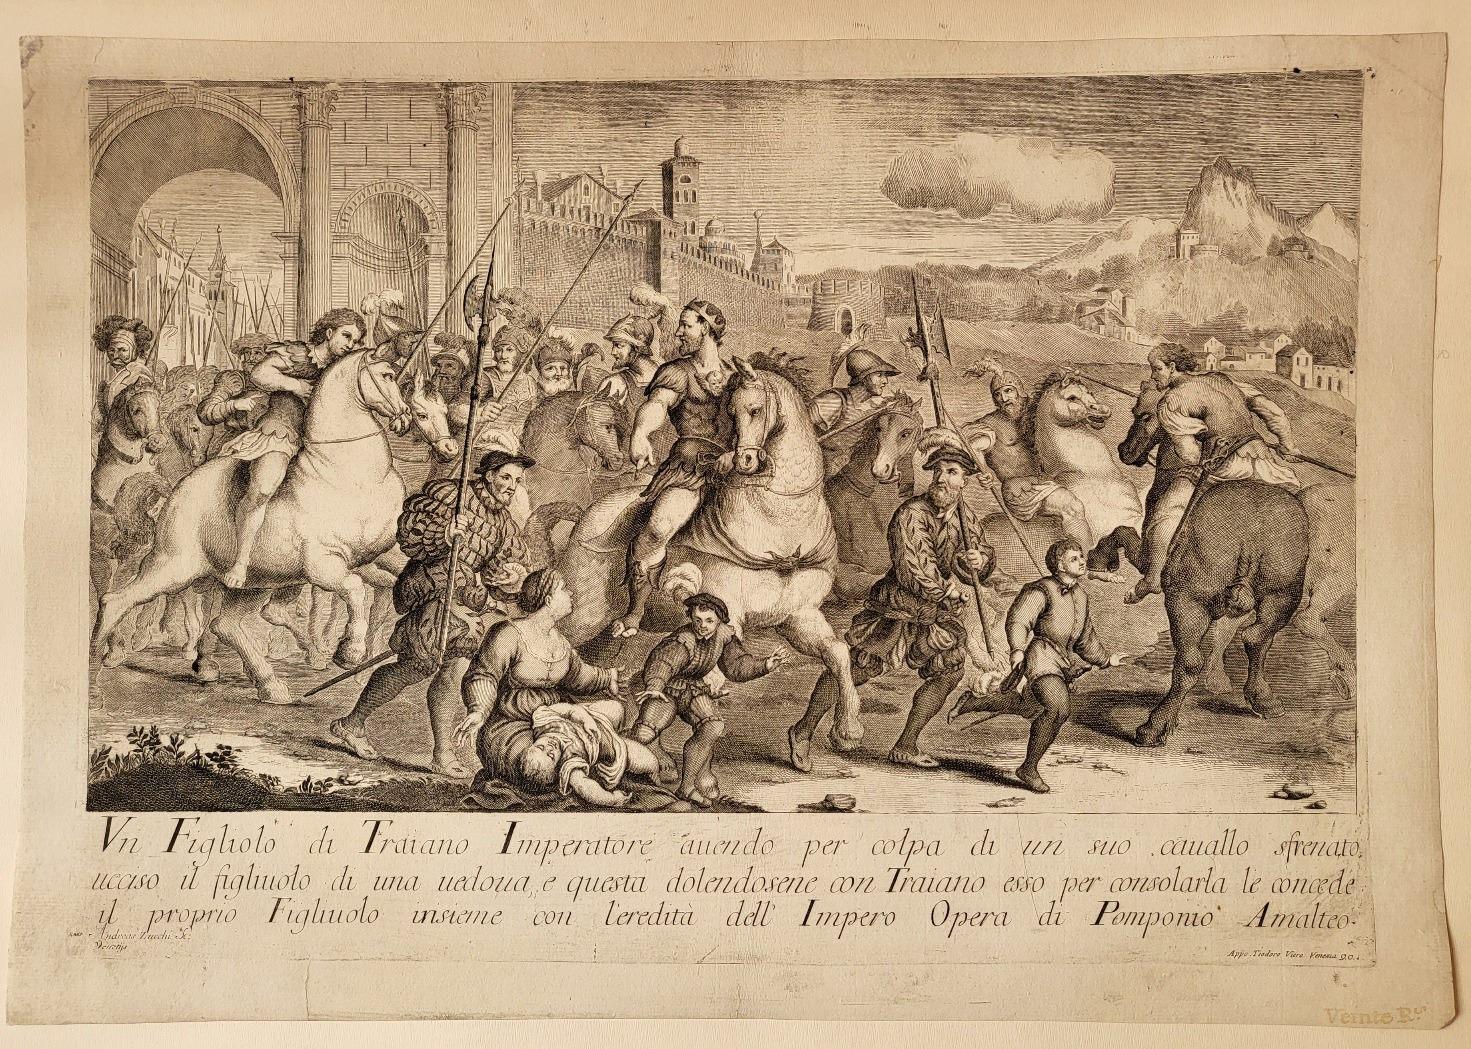 Vn Figliolo di Traiano Imperatore auendo per colpa di un suo cauallo sfrenato,
ucciso il figliuolo di una uedoua, e questa dolendosene con Traiano esso per consolarla le concede
il proprio Figliuolo insieme con l'eredità dell' Impero Opera di Pomponio Amalteo.
Andreas Zucchi Sc.
Venetijs
Appo Tiodoro Viero Venezia